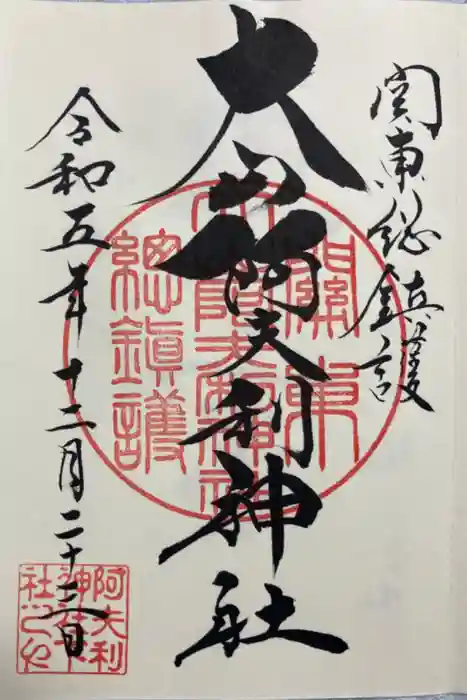 関東総鎮護
大山阿夫利神社
令和五年十二月二十三日
關東
大山阿夫利神社
總鎮護
阿夫利
神社本
社之印